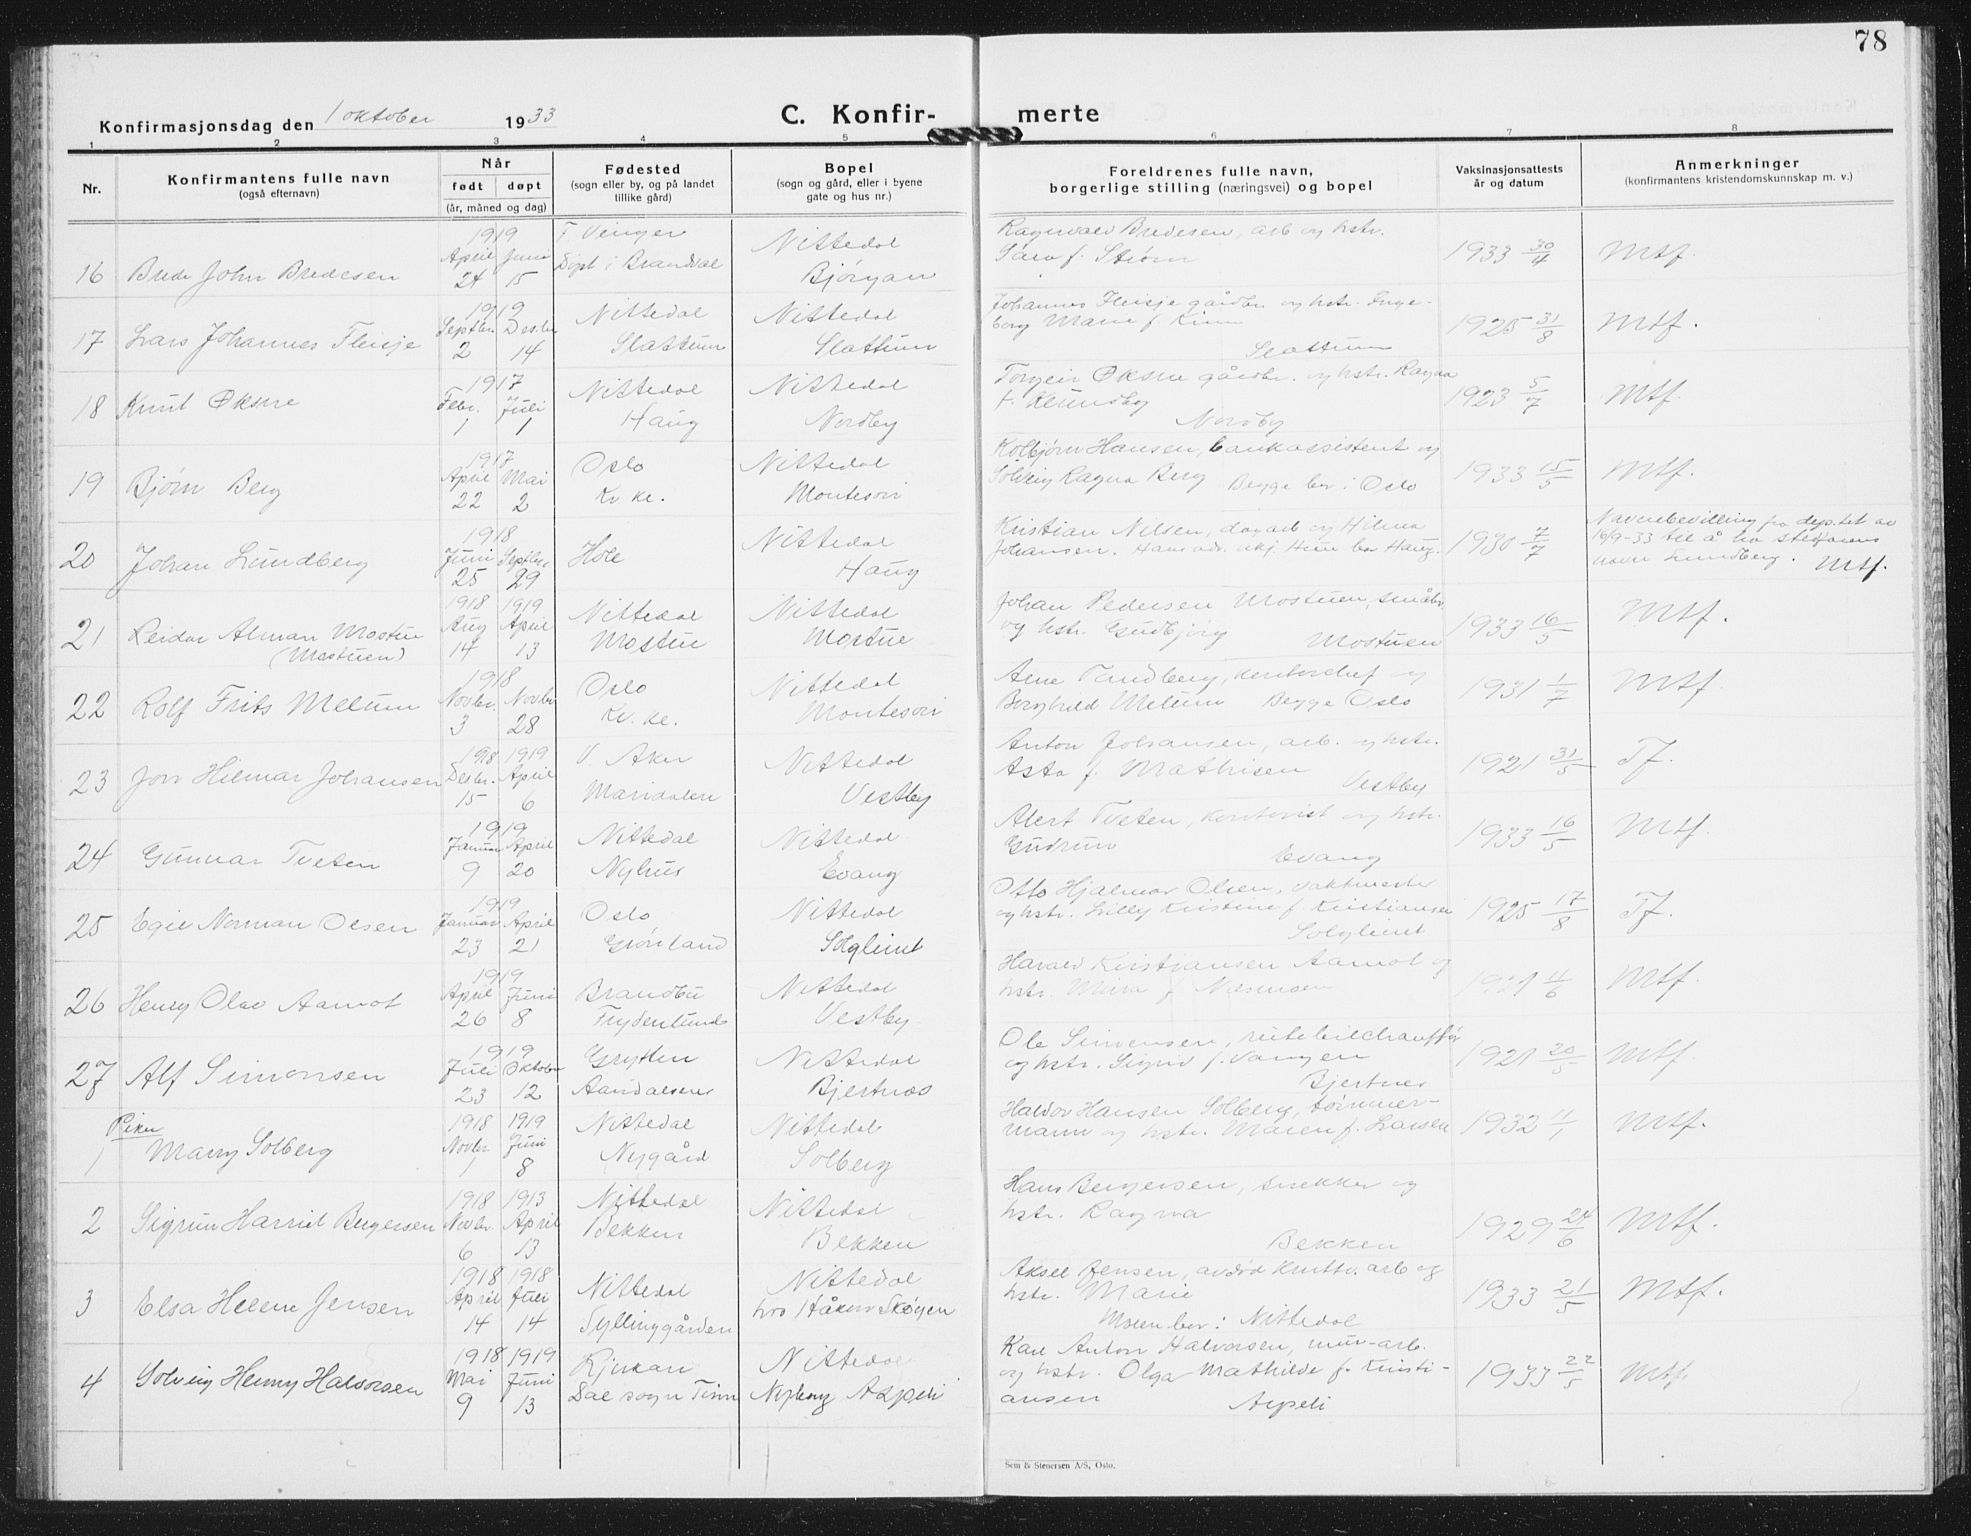 78
Konfirmasjonsdag den 1 oktober 1933
C. Konfir- merte
1 2 3 4 5 6 7 8
Nr.
Konfirmantens fulle navn
(også efternavn)
Når
født døpt
(år, måned og dag)
Fødested
(sogn eller by, og på landet
tillike gård)
Bopel
(sogn og gård, eller i byene
gate og hus nr.)
Foreldrenes fulle navn,
borgerlige stilling (næringsvei) og bopel
Vaksinasjonsattests
år og datum
Anmerkninger
(konfirmantens kristendomskunnskap m. v.)
1919 Venger Nittedal Ragnvald Bredesen, arb og hstr.
April Juni Døpt i Brandval
16 Brede John Bredesen 24 15 Bjørgan Sara f. Strøm 1933 30/4 Mtf.
1919 Nittedal Nittedal Johannes Fleisje gårdbr og hstr. Inge-
17 Lars Johannes Fleisje Septbr. Desbr borg Marie f. 1925 31/8 Mtf.
2 14 Slattum Slattum Slattum
1917 Nittedal Nittedal Torgeir Øksne gårdbr. og hstr. Ragna
18 Knut Øksne Febr. Juli f. 1923 5/7 Mtf.
1 1 Haug Nordby Nordby
1917 Oslo Nittedal Kolbjørn Hansen, bankassistent og
19 Bjørn Berg April Mai Solveig Ragna Berg Begge bor i Oslo 1933 15/5 Mtf.
22 2 Kv ke. Montesori
1918 Nittedal Kristian Nilsen, dagarb og Hilma Navnebevilling fra dep.tet av
20 Johan Lundberg Juni Septbr. Hole Johansen. Hun bor Haug. 1930 7/7 16/9-33 til å ha
25 29 Haug navn Lundberg. Mtf.
1918 1919 Nittedal Nittedal Johan Pedersen Mostuen, småbr
21 Reidar Alman Mostue Aug April Mostue Mostue og hstr. Gudbjørg Mostuen 1933 16/5 Mtf.
(Mostuen) 14 13
1918 Oslo Nittedal Arne Tandberg, kontorchef og
22 Rolf Frits Melum Novbr. Novbr Kv. ke. Montesori Borghild Melum Begge Oslo 1931 1/7 Mtf.
3 28
1918 1919 V. Aker Nittedal Anton Johansen, arb. og hstr.
23 Jon Hilmar Johansen Desbr. April Asta f. Mathisen 1921 31/5 Tf.
15 6 Maridalen Vestby Vestby
1919 Nittedal Nittedal Alert Tveten, kontorist og hstr.
24 Gunnar Tveten Januar April Gudrun 1933 16/5 Mtf.
9 20 Nyhus Evang Evang
1919 Oslo Nittedal Otto Hjalmar Olsen, vaktmester
25 Egil Norman Olsen Januar April og hstr. Lilly Kristine f. Kristiansen 1925 17/8 Tf.
23 21 Grønland Solglimt Solglimt
1919 Brandbu Nittedal Harald Kristiansen Aamot og
26 Henry Olav Aamot April Juni hstr. f. 1921 11/6 Mtf.
26 8 Frydenlund Vestby
1919 Grytten Nittedal Ole Simensen, rutebilchauffør
27 Alf Simonsen Juli Oktober og hstr. Sigrid f. Vangen 1921 20/5 Mtf.
23 12 Aandalsnes Bjertnæs Bjertnes
Piker 1918 1919 Nittedal Nittedal Haldor Hansen Solberg, tømmer-
1 Marry Solberg Novbr. Juni mann og hstr. Maren f. Larsen 1932 11/1 Mtf.
1 8 Nygård Solberg
1918 1913 Nittedal Nittedal Hans Bergersen, snekker og
2 Sigrun Harriet Bergersen Novbr. April Bekken hstr. Ragna 1929 24/6 Mtf.
6 13 Bekken Bekken
1918 1918 Nittedal Nittedal Aksel Jensen, avdød kruttv. arb og
3 Elsa Helene Jensen April Juli hos Håkon Skøyen hstr. Marie 1933 21/5 Mtf.
14 14 Syllinggården Moren bor i Nittedal
1918 1919 Rjukan Nittedal Karl Anton Halvorsen, mur-arb.
4 Solveig Henny Halvorsen Mai Juni Dal sogn Tinn Nyberg Aspeli og hstr. Olga Mathilde f. Kristi- 1933 22/5 Mtf.
9 13 ansen Aspeli
Sem & Stenersen A/S, Oslo.